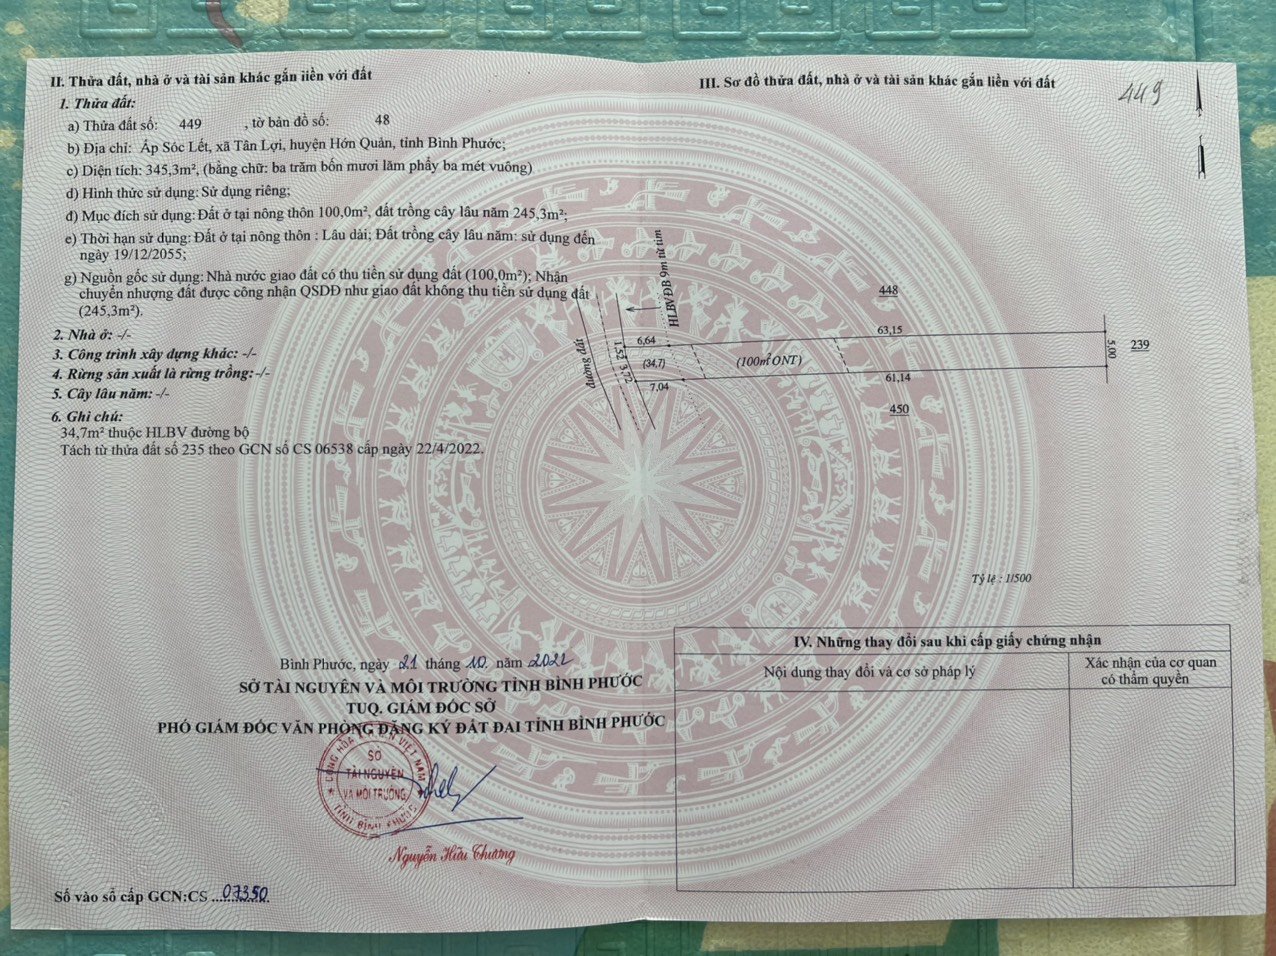 II. Thửa đất, nhà ở và tài sản khác gắn liền với đất
1. Thửa đất:
a) Thửa đất số: 449 , tờ bản đồ số: 48
b) Địa chỉ: Ấp Sóc Lết, xã Tân Lợi, huyện Hớn Quản, tỉnh Bình Phước;
c) Diện tích: 345,3m², (bằng chữ: ba trăm bốn mươi lăm phẩy ba mét vuông)
d) Hình thức sử dụng: Sử dụng riêng;
đ) Mục đích sử dụng: Đất ở tại nông thôn 100,0m², đất trồng cây lâu năm 245,3m²;
e) Thời hạn sử dụng: Đất ở tại nông thôn : Lâu dài; Đất trồng cây lâu năm: sử dụng đến
ngày 19/12/2055;
g) Nguồn gốc sử dụng: Nhà nước giao đất có thu tiền sử dụng đất (100,0m²); Nhận
chuyển nhượng đất được công nhận QSDĐ như giao đất không thu tiền sử dụng đất
(245,3m²).
2. Nhà ở: -/-
3. Công trình xây dựng khác: -/-
4. Rừng sản xuất là rừng trồng: -/-
5. Cây lâu năm: -/-
6. Ghi chú:
34,7m² thuộc HLBV đường bộ
Tách từ thửa đất số 235 theo GCN số CS 06538 cấp ngày 22/4/2022.
Bình Phước, ngày 21 tháng 10 năm 2022
SỞ TÀI NGUYÊN VÀ MÔI TRƯỜNG TỈNH BÌNH PHƯỚC
TUQ. GIÁM ĐỐC SỞ
PHÓ GIÁM ĐỐC VĂN PHÒNG ĐĂNG KÝ ĐẤT ĐAI TỈNH BÌNH PHƯỚC
CỘNG HÒA X.H.C.N VIỆT NAM
SỞ
TÀI NGUYÊN
VÀ MÔI TRƯỜNG
TỈNH BÌNH PHƯỚC
Nguyễn Hữu Thương
Số vào sổ cấp GCN:CS 07350
III. Sơ đồ thửa đất, nhà ở và tài sản khác gắn liền với đất
449
HLBVĐB 9m từ tim
448
6,64
63,15
đường đất
1,52
3,72
(34,7)
(100m² ONT)
5,00
239
7,04
61,14
450
Tỷ lệ : 1/500
IV. Những thay đổi sau khi cấp giấy chứng nhận
Nội dung thay đổi và cơ sở pháp lý
Xác nhận của cơ quan
có thẩm quyền